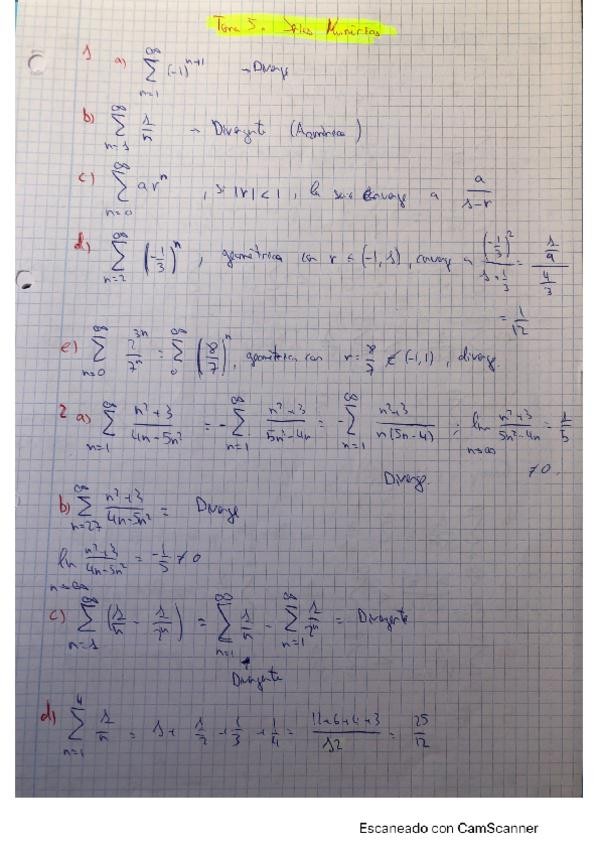 Tema 5. Series Numéricas
1 a) ∑_{n=1}^{∞} (-1)^{n+1} → Diverge
b) ∑_{n=1}^{∞} 1/n → Divergente (Armónica)
c) ∑_{n=0}^{∞} ar^n , si |r| < 1, la serie converge a a/(1-r)
d) ∑_{n=2}^{∞} (-1/3)^n , geométrica con r ∈ (-1,1), converge a (-1/3)^2/(1+1/3) = (1/9)/(4/3)
= 1/12
e) ∑_{n=0}^{∞} 2^{3n}/7^n = ∑_{0}^{∞} (8/7)^n , geométrica con r = 8/7 ∉ (-1,1), diverge.
2 a) ∑_{n=1}^{∞} (n²+3)/(4n-5n²) = -∑_{n=1}^{∞} (n²+3)/(5n²-4n) = -∑_{n=1}^{∞} (n²+3)/(n(5n-4)) ; lim_{n→∞} (n²+3)/(5n²-4n) = 1/5
≠0.
Diverge.
b) ∑_{n=27}^{∞} (n²+3)/(4n-5n²) = Diverge
lim_{n→∞} (n²+3)/(4n-5n²) = -1/5 ≠ 0
c) ∑_{n=1}^{∞} (1/n - 1/2^n) = ∑_{n=1}^{∞} 1/n - ∑_{n=1}^{∞} 1/2^n = Divergente
Divergente
d) ∑_{n=1}^{4} 1/n = 1 + 1/2 + 1/3 + 1/4 = (12+6+4+3)/12 = 25/12
Escaneado con CamScanner